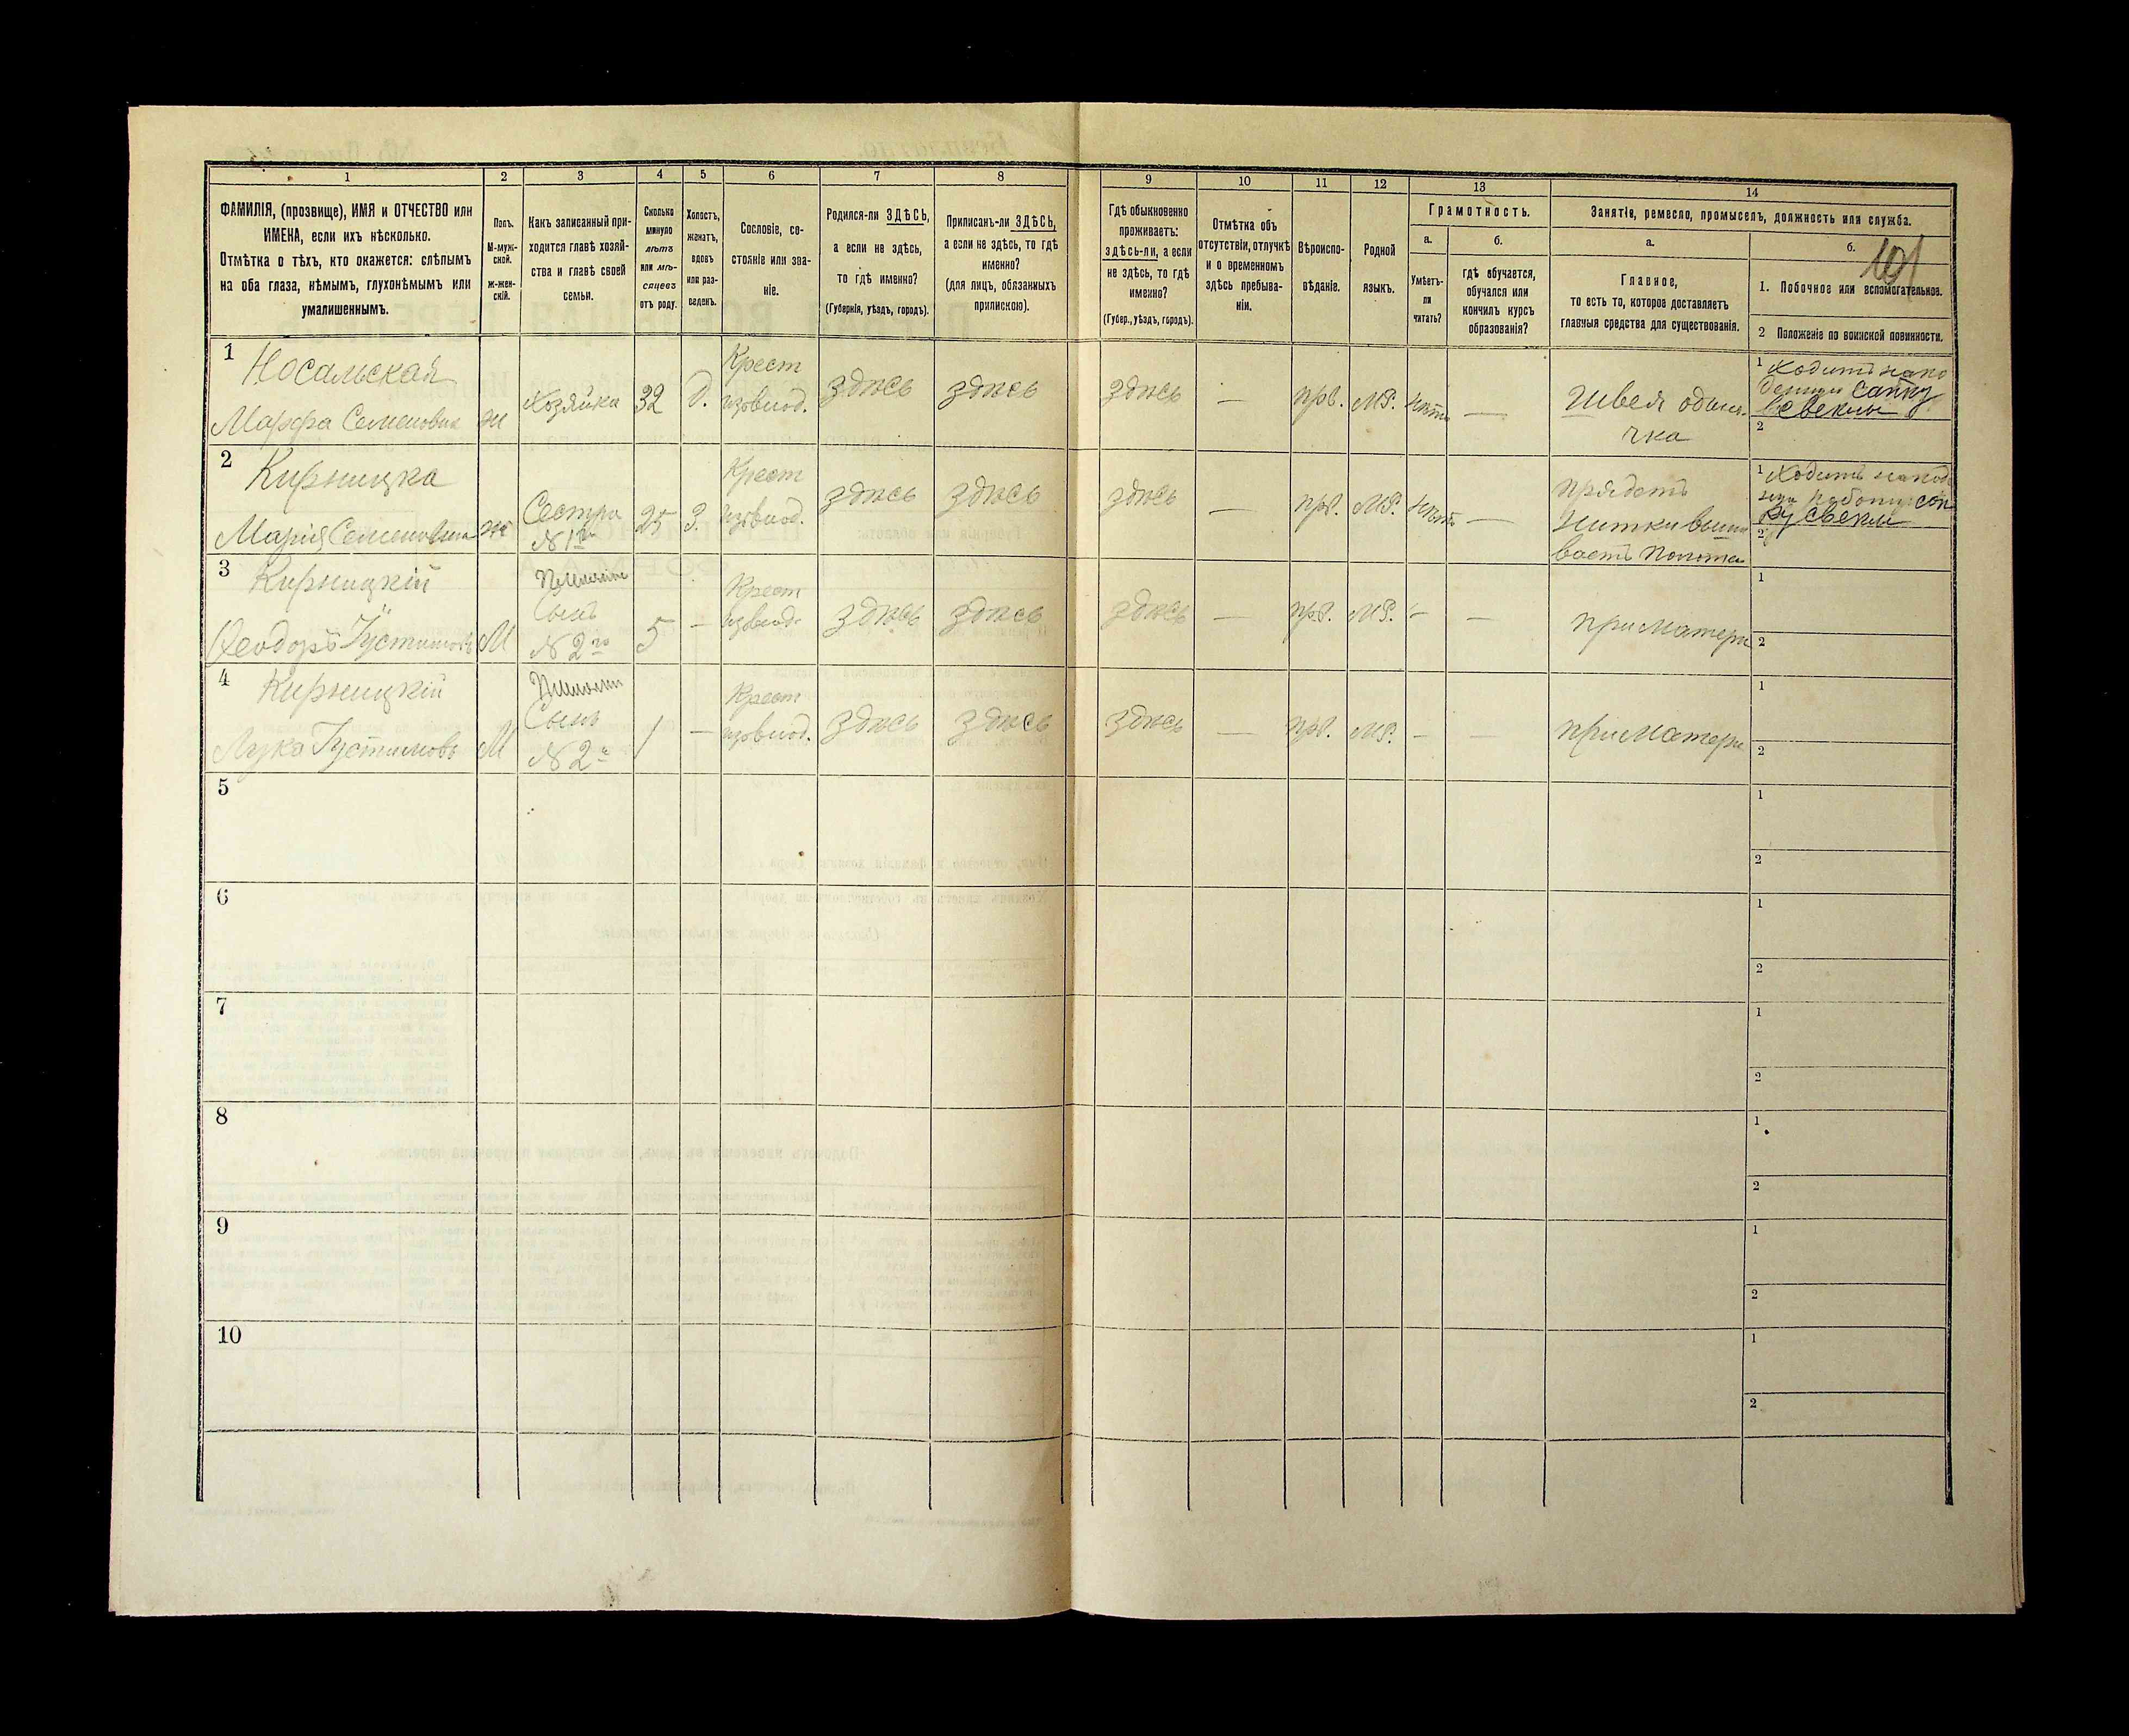 1 2 3 4 5 6 7 8 9 10 11 12 13 14
ФАМИЛІЯ, (прозвище), ИМЯ и ОТЧЕСТВО или
ИМЕНА, если ихъ нѣсколько.
Отмѣтка о тѣхъ, кто окажется: слѣпымъ
на оба глаза, нѣмымъ, глухонѣмымъ или
умалишеннымъ.
Полъ.
М-муж-
ской.
ж-жен-
скій.
Какъ записанный при-
ходится главѣ хозяй-
ства и главѣ своей
семьи.
Сколько
минуло
лѣтъ
или мѣ-
сяцевъ
отъ роду.
Холостъ,
женатъ,
вдовъ
или раз-
веденъ.
Сословіе, со-
стояніе или зва-
ніе.
Родился-ли ЗДѢСЬ,
а если не здѣсь,
то гдѣ именно?
(Губернія, уѣздъ, городъ).
Приписанъ-ли ЗДѢСЬ,
а если не здѣсь, то гдѣ
именно?
(для лицъ, обязанныхъ
припискою).
Гдѣ обыкновенно
проживаетъ:
здѣсь-ли, а если
не здѣсь, то гдѣ
именно?
(Губер., уѣздъ, городъ).
Отмѣтка объ
отсутствіи, отлучкѣ
и о временномъ
здѣсь пребыва-
ніи.
Вѣроиспо-
вѣданіе.
Родной
языкъ.
Грамотность.
а.
Умѣетъ-
ли
читать?
б.
гдѣ обучается,
обучался или
кончилъ курсъ
образованія?
Занятіе, ремесло, промыселъ, должность или служба.
а.
Главное,
то есть то, которое доставляетъ
главныя средства для существованія.
б.
101
1. Побочное или вспомогательное.
2 Положеніе по воинской повинности.
1 Носальская
Марфа Семеновна
ж
Хозяйка
32
Д.
Крест
здѣсь
здѣсь
здѣсь
—
прв.
МР.
нѣтъ
—
Швея одино-
чка
1 Ходитъ на
свеклы
2
2 Кирницка
Марія Семеновна
ж
Сестра
№ 1й
25
З.
Крест
здѣсь
здѣсь
здѣсь
—
прв.
МР.
нѣтъ
—
прядетъ
нитки
1 Ходитъ на
свеклы
2
3 Кирницкій
Ѳеодоръ Іустиновъ
М
Сынъ
№ 2го
5
—
Крест
здѣсь
здѣсь
здѣсь
—
прв.
МР.
—
—
при матери
1
2
4 Кирницкій
Лука Іустиновъ
М
Сынъ
№ 2й
1
—
Крест
здѣсь
здѣсь
здѣсь
—
прв.
МР.
—
—
при матери
1
2
5
1
2
6
1
2
7
1
2
8
1
2
9
1
2
10
1
2